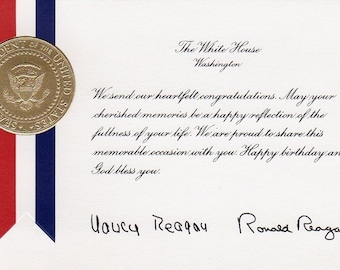 The White House
Washington
We send our heartfelt congratulations. May your
cherished memories be a happy reflection of the
fullness of your life. We are proud to share this
memorable occasion with you. Happy birthday an
God bless you.
Nancy Reagan Ronald Reaga